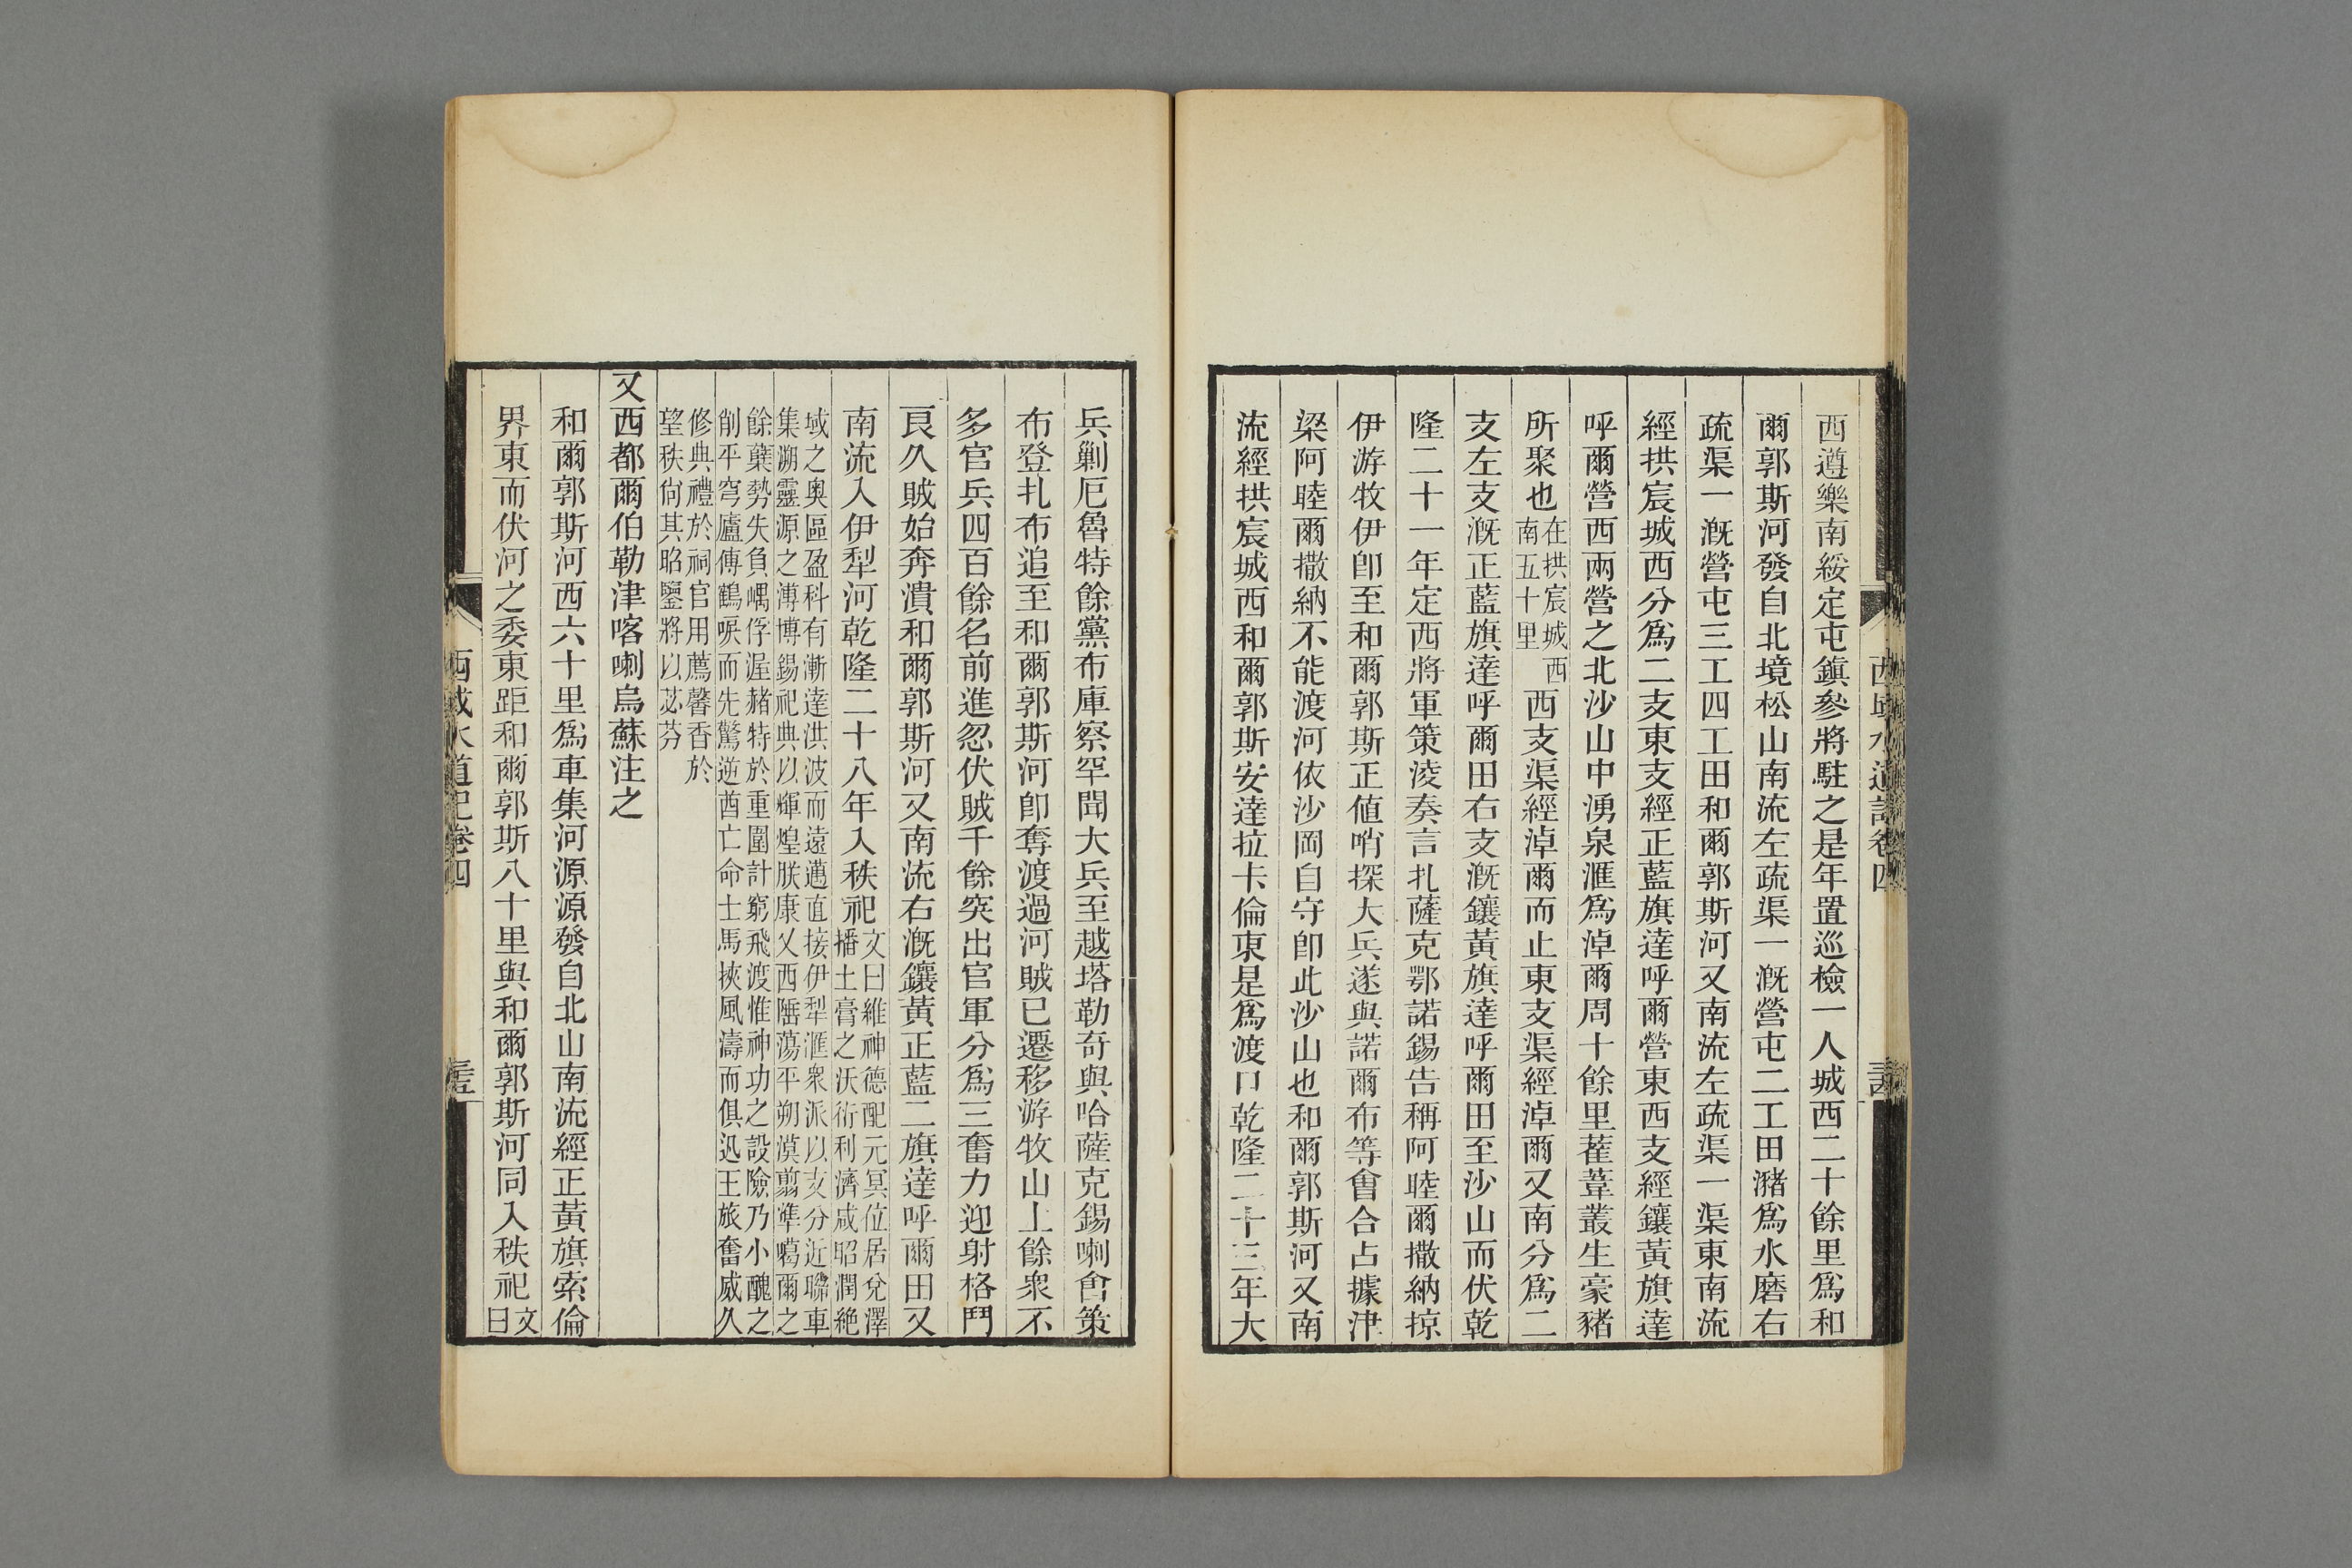 西域水道記卷四
西遵樂南綏定屯鎮參將駐之是年置巡檢一人城西二十餘里爲和
爾郭斯河發自北境松山南流左疏渠一漑營屯二工田瀦爲水磨右
疏渠一漑營屯三工四工田和爾郭斯河又南流左疏渠一渠東南流
經拱宸城西分爲二支東支經正藍旗達呼爾營東西支經鑲黃旗達
呼爾營西兩營之北沙山中湧泉滙爲淖爾周十餘里雚葦叢生豪豬
所聚也在拱宸城西南五十里西支渠經淖爾而止東支渠經淖爾又南分爲二
支左支漑正藍旗達呼爾田右支漑鑲黃旗達呼爾田至沙山而伏乾
隆二十一年定西將軍策淩奏言扎薩克鄂諾錫告稱阿睦爾撒納掠
伊游牧伊卽至和爾郭斯正値哨探大兵遂與諾爾布等會合占據津
梁阿睦爾撒納不能渡河依沙岡自守卽此沙山也和爾郭斯河又南
流經拱宸城西和爾郭斯安達拉卡倫東是爲渡口乾隆二十三年大
兵剿厄魯特餘黨布庫察罕聞大兵至越塔勒奇與哈薩克錫喇會策
布登扎布追至和爾郭斯河卽奪渡過河賊已遷移游牧山上餘衆不
多官兵四百餘名前進忽伏賊千餘突出官軍分爲三奮力迎射格鬥
良久賊始奔潰和爾郭斯河又南流右漑鑲黃正藍二旗達呼爾田又
南流入伊犁河乾隆二十八年入秩祀文曰維神德配元冥位居兌澤
播土膏之沃衍利濟咸昭潤絶
域之奧區盈科有漸達洪波而遠邁直接伊犁滙衆派以支分近聯車
集溯靈源之溥博錫祀典以輝煌朕康乂西陲蕩平朔漠翦準噶爾之
餘糵勢失負嵎俘渥赭特於重圍計窮飛渡惟神功之設險乃小醜之
削平穹廬傳鶴唳而先驚逆酋亡命士馬挾風濤而俱迅王旅奮威久
修典禮於祠官用薦馨香於
望秩尙其昭鑒將以苾芬
又西都爾伯勒津喀喇烏蘇注之
和爾郭斯河西六十里爲車集河源源發自北山南流經正黃旗索倫
界東而伏河之委東距和爾郭斯八十里與和爾郭斯河同入秩祀文曰
西域水道記卷四